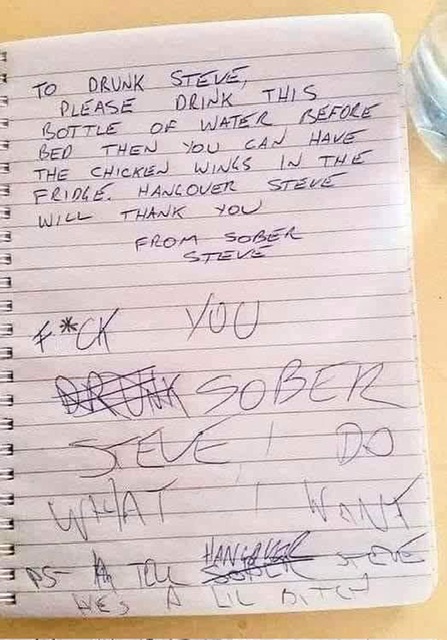 TO DRUNK STEVE,
PLEASE DRINK THIS
BOTTLE OF WATER BEFORE
BED THEN YOU CAN HAVE
THE CHICKEN WINGS IN THE
FRIDGE. HANGOVER STEVE
WILL THANK YOU
FROM SOBER
STEVE
F*CK YOU
DRUNK SOBER
STEVE I DO
WHAT I WANT
PS- TELL HANGOVER SOBER STEVE
HES A LIL BITCH